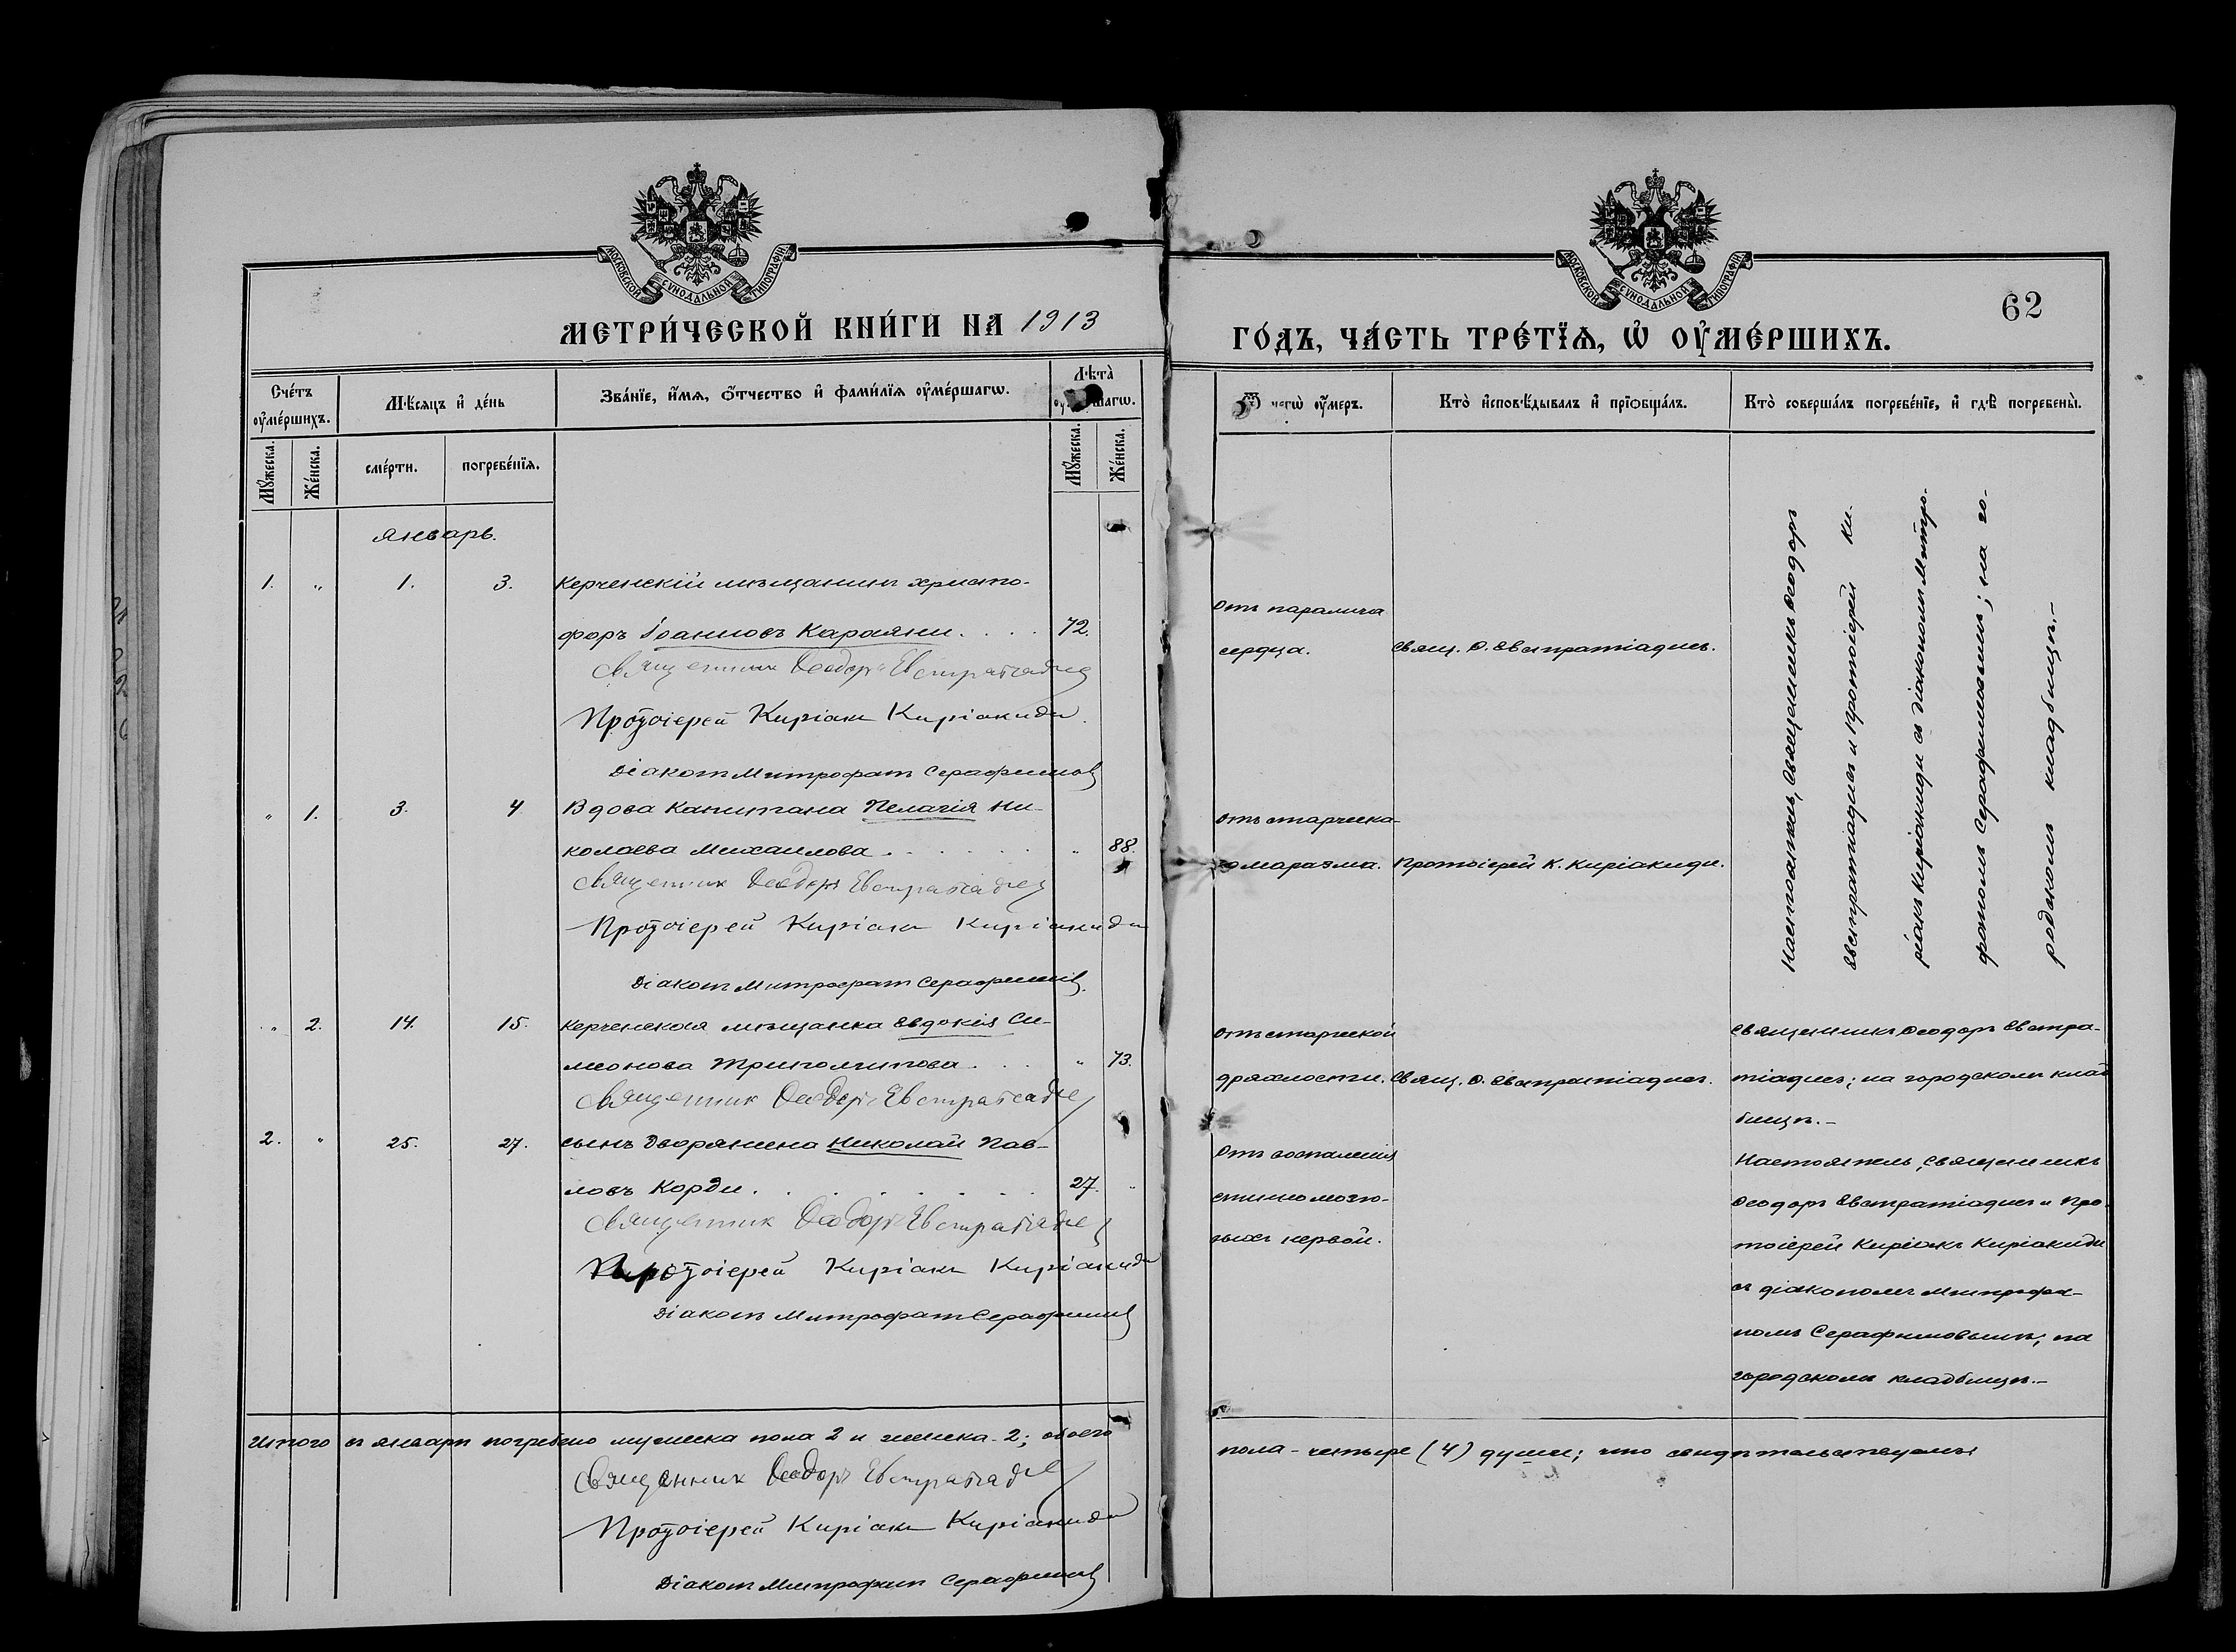 МОСКОВСКОЙ СУНОДАЛЬНОЙ ТИПОГРАФІИ
МЕТРИ́ЧЕСКОЙ КНИ́ГИ НА 1913
Сче́тъ оу҆ме́ршихъ.
Мѣ́сяцъ и҆ де́нь
Зва́нїе, и҆́мѧ, ѻ҆́тчество и҆ фами́лїѧ оу҆ме́ршагѡ.
Лѣта̀
Мꙋ́жеска.
Же́нска.
сме́рти.
погребе́нїѧ.
Мꙋ́жеска.
Же́нска.
Январь.
1. „ 1. 3. Керченскій мѣщанинъ Христо-
форъ Іоанновъ Караяни. . . . 72.
Священникъ Ѳеодоръ Евстратіадис
Протоіерей Киріакъ Киріакиди.
Діаконъ Митрофанъ Серафимов
„ 1. 3. 4 Вдова Капитана Пелагія Ни-
колаева Михаилова. . . . . . „ 88.
Священник Ѳеодоръ Евстратіадис
Протоіерей Киріакъ Киріакиди
Діаконъ Митрофанъ Серафимов.
„ 2. 14. 15. Керченская мѣщанка Евдокія Си-
меонова . . . „ 73.
Священник Ѳеодоръ Евстратіадис
2. „ 25. 27. Сынъ Дворянина Николай Пав-
ловъ Корди. . . . . . . 27. „
Священник Ѳеодоръ Евстратіадис
Протоіерей Киріакъ Киріакиди
Діаконъ Митрофанъ Серафимов
Итого въ январѣ погребено мужеска пола 2 и женска - 2; обоего
Священник Ѳеодоръ Евстратіадис
Протоіерей Киріакъ Киріакиди
Діаконъ Митрофанъ Серафимов
МОСКОВСКОЙ СУНОДАЛЬНОЙ ТИПОГРАФІИ
62
ГО́ДЪ, ЧА́СТЬ ТРЕ́ТЇѦ, Ѡ҆ ОУ҆МЕ́РШИХЪ.
Ѿ чегѡ̀ оу҆́меръ.
Кто̀ и҆сповѣ́дывалъ и҆ прїѻбща́лъ.
Кто̀ соверша́лъ погребе́нїе, и҆ гдѣ̀ погребены̀.
Отъ паралича
сердца. Свящ. Ѳ. Евстратіадисъ.
Настоятель, священникъ Ѳеодоръ
Евстратіадисъ и протоіерей Ки-
ріакъ Киріакиди съ діакономъ Митро-
фаномъ Серафимовымъ; на го-
родскомъ кладбищѣ.—
Отъ старческа-
го маразма. Протоіерей К. Киріакиди.
Отъ старческой
дряхлости. Свящ. Ѳ. Евстратіадисъ.
Священникъ Ѳеодоръ Евстра-
тіадисъ; на городскомъ клад-
бищѣ.—
Отъ воспаленія
спинномозго-
выхъ нервовъ.
Настоятель, священникъ
Ѳеодоръ Евстратіадисъ и Про-
тоіерей Киріакъ Киріакиди
съ діакономъ Митрофа-
номъ Серафимовымъ; на
городскомъ кладбищѣ.—
пола - четыре (4) души; что свидѣтельствуемъ: